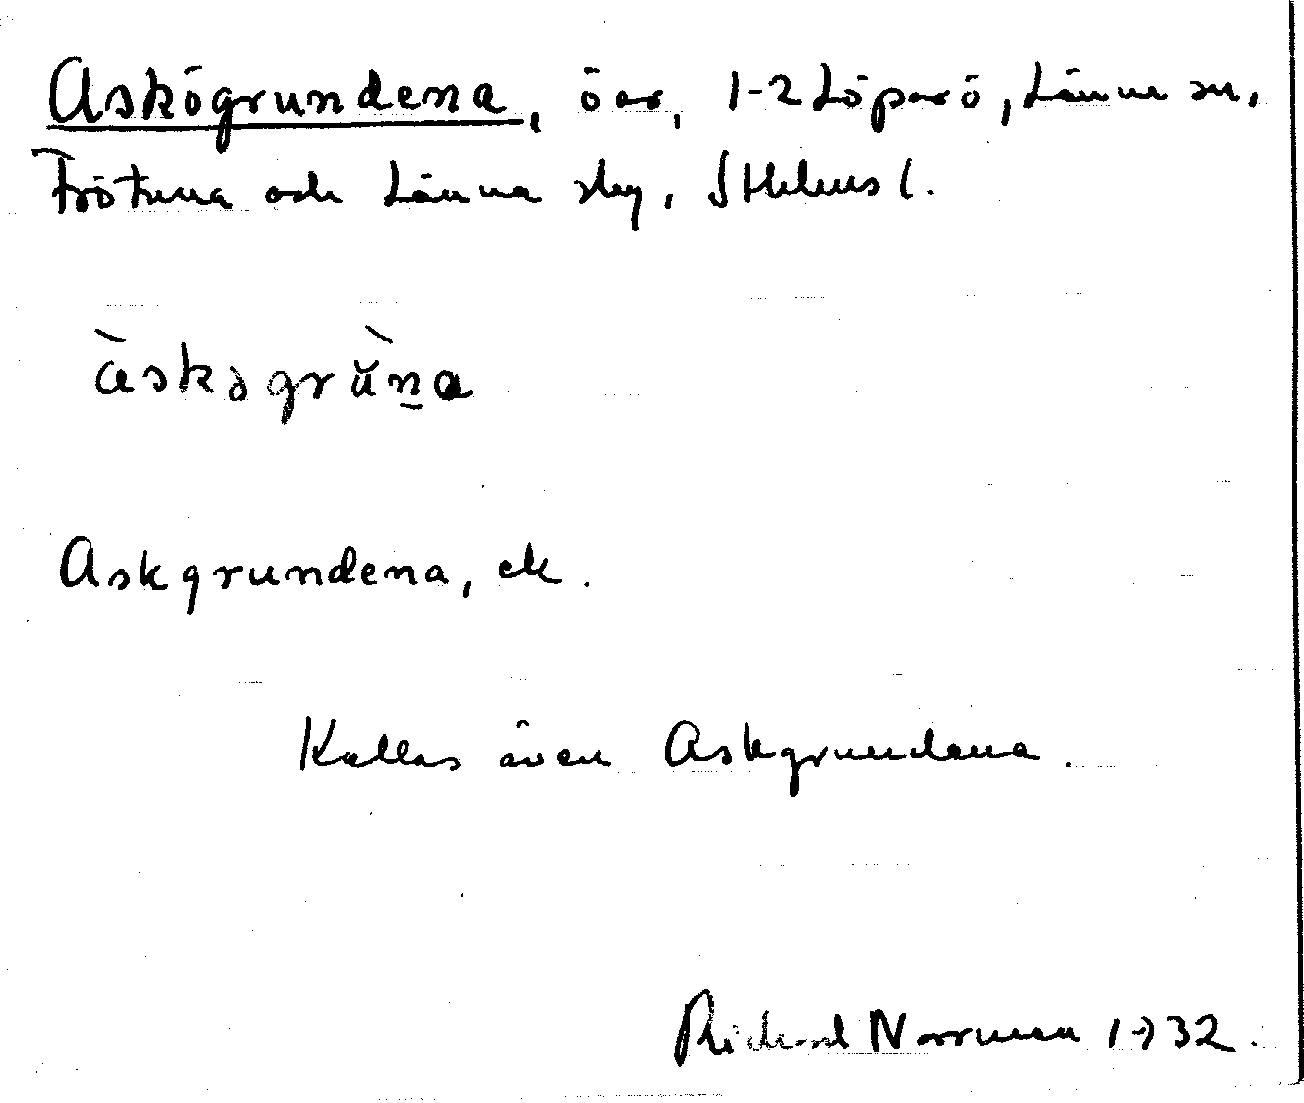 Askögrundena, öar, 1-2 Löparö, Länna sn,
Frötuna och Länna slg, Sthlms l.
àskögrŭ̀ṉa
Askgrundena, ek.
Kallas även Askgrundena.
Richard Norrman 1932.